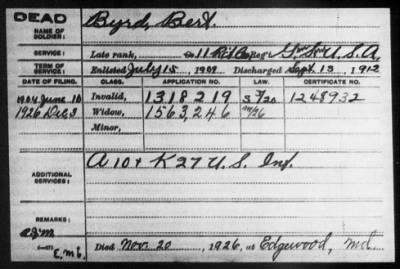 DEAD
NAME OF SOLDIER: Byrd, Bert.
SERVICE: Late rank, Co 11 Regt U.S.A.
TERM OF SERVICE: Enlisted July 15, 1909 Discharged Sept. 13, 1912
DATE OF FILING. CLASS. APPLICATION NO. CERTIFICATE NO.
1904 June 10 Invalid, 1318219 1248932
1926 Dec 3 Widow, 1563,246
Minor,
ADDITIONAL SERVICES: A 10 + K 27 U.S. Inf.
REMARKS:
Died Nov. 20, 1926, at Edgewood, Md.